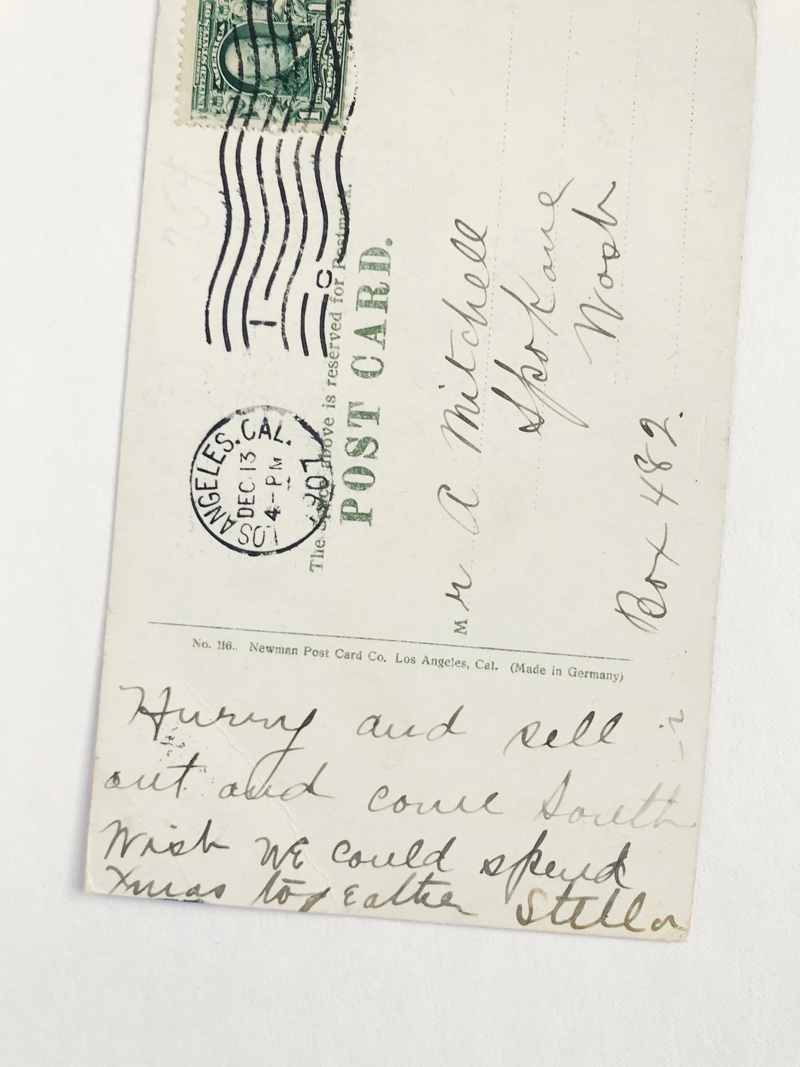 UNITED STATES OF AMERICA
LOS ANGELES. CAL.
DEC 13
4 - PM
1907
1 C
The space above is reserved for Postmark.
POST CARD.
Mr A Mitchell
Spokane
Wash
Box 482.
No. 116. Newman Post Card Co. Los Angeles, Cal. (Made in Germany)
Hurry and sell
out and come South
Wish we could spend
Xmas togeather Stella